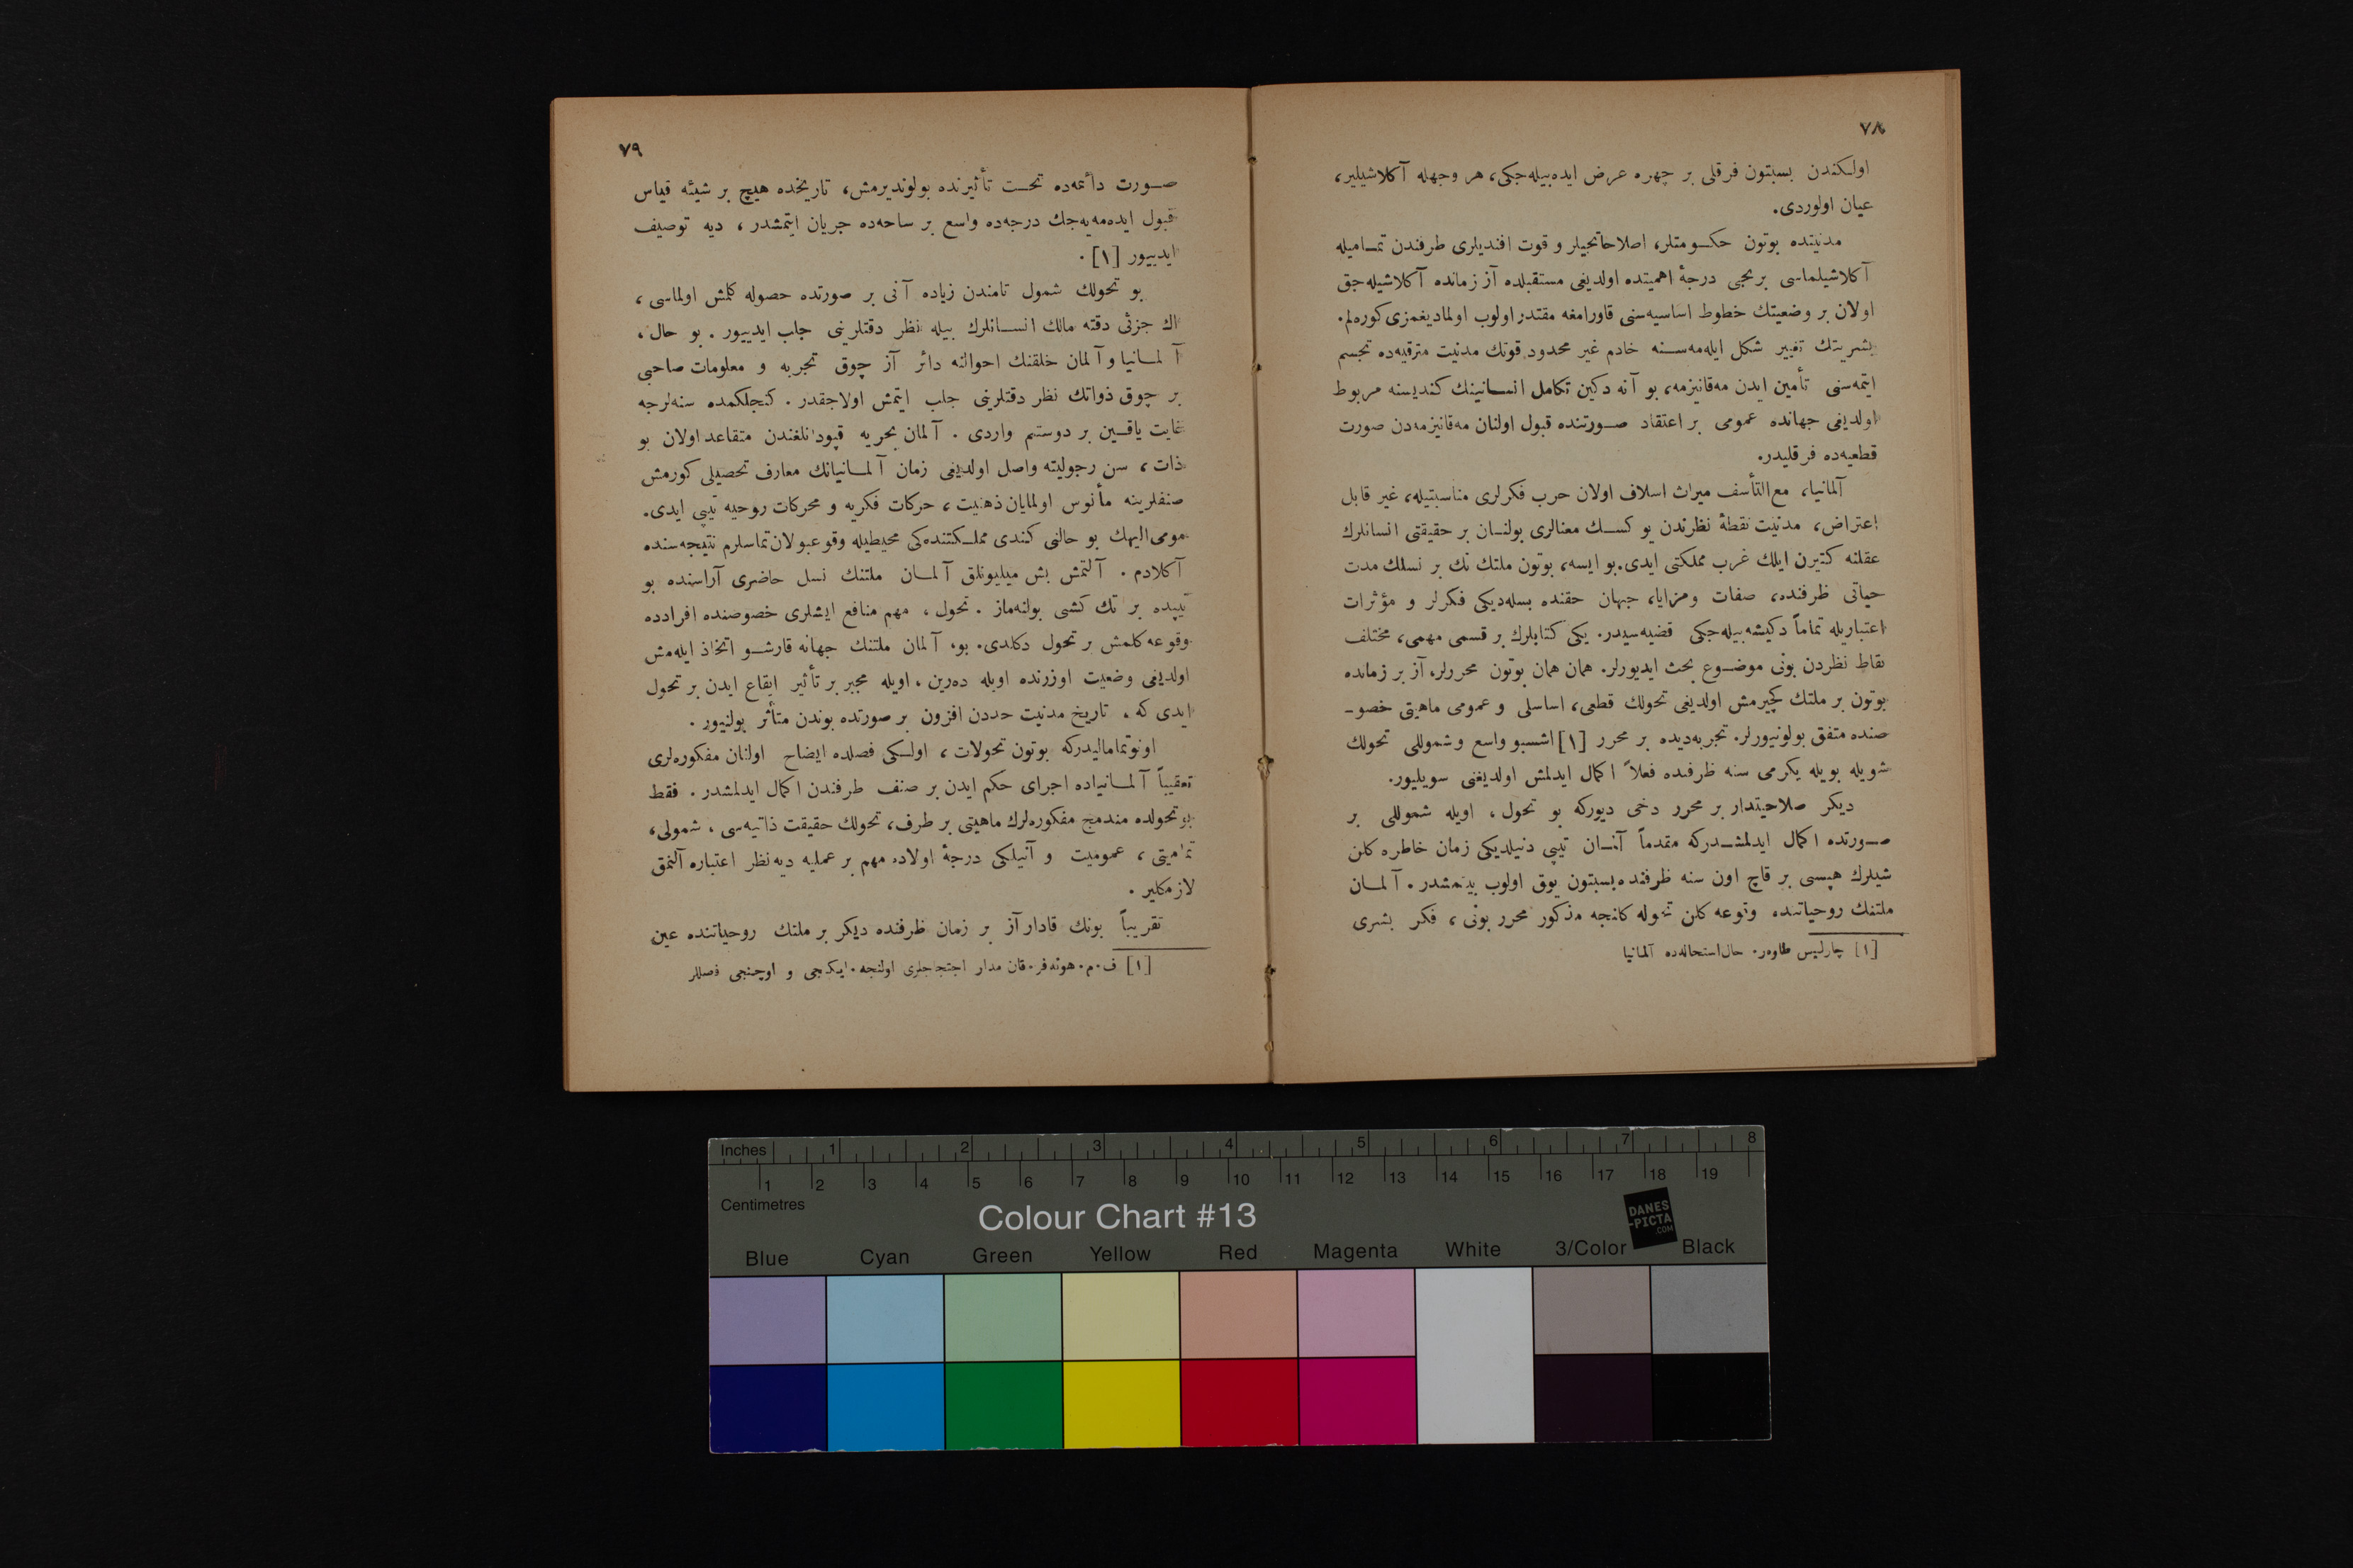 ٧٨
اولكندن بسبتون فرقلی بر چهره عرض ايده‌بيله‌جكی، هر وجهله آكلاشيلير،
عيان اولوردی.
مدنيتده بوتون حكومتلر، اصلاحاتجيلر و قوت افنديلری طرفندن تماميله
آكلاشيلماسی برنجی درجهٔ اهميتده اولديغی مستقبلده آز زمانده آكلاشيله‌جق
اولان بر وضعيتك خطوط اساسيه‌سنی قاورامغه مقتدر اولوب اولماديغمزی كوره‌لم.
بشريتك تغيير شكل ايله‌مه‌سنه خادم غير محدود قوتك مدنيت مترقيه‌ده تجسم
ايتمه‌سنی تأمين ايدن مه‌قانيزمه، بو آنه دكين تكامل انسانينك كنديسنه مربوط
اولديغی جهانده عمومی بر اعتقاد صورتنده قبول اولنان مه‌قانيزمه‌دن صورت
قطعيه‌ده فرقليدر.
آلمانيا، مع‌التأسف ميراث اسلاف اولان حرب فكرلری مناسبتيله، غير قابل
اعتراض، مدنيت نقطهٔ نظرندن يوكسك معنالری بولنان بر حقيقتی انسانلرك
عقلنه كتيرن ايلك غرب مملكتی ايدی. بو ايسه، بوتون ملتك تك بر نسلك مدت
حياتی ظرفنده، صفات ومزايا، جهان حقنده بسله‌ديكی فكرلر و مؤثرات
اعتباريله تماماً دكيشه‌بيله‌جكی قضيه‌سيدر. يكی كتابلرك بر قسمی مهمی، مختلف
نقاط نظردن بونی موضوع بحث ايديورلر. همان همان بوتون محررلر، آز بر زمانده
بوتون بر ملتك كچيرمش اولديغی تحولك قطعی، اساسلی و عمومی ماهيتی خصو-
صنده متفق بولونيورلر. تجربه‌ديده بر محرر [١] اشبو واسع وشموللی تحولك
شويله بويله يكرمی سنه ظرفنده فعلاً اكمال ايدلمش اولديغنی سويليور.
ديكر صلاحيتدار بر محرر دخی ديوركه بو تحول، اويله شموللی بر
صورتده اكمال ايدلمشدركه متقدماً آلمان تيپی دنيلديكی زمان خاطره كلن
شيلرك هپسی بر قاچ اون سنه ظرفنده بسبتون يوق اولوب بيتمشدر. آلمان
ملتنك روحياتنده وقوعه كلن تحوله كلنجه مذكور محرر بونی، فكر بشری
[١] چارليس طاوهر. حال‌استحاله‌ده آلمانيا
٧٩
صورت دائمه‌ده تحت تأثيرنده بولونديرمش، تاريخده هيچ بر شيئه قياس
قبول ايده‌مه‌يه‌جك درجه‌ده واسع بر ساحه‌ده جريان ايتمشدر، ديه توصيف
ايدييور [١].
بو تحولك شمول تامندن زياده آنی بر صورتده حصوله كلمش اولماسی،
اك جزئی دقته مالك انسانلرك بيله نظر دقتلرينی جلب ايدييور. بو حال،
آلمانيا و آلمان خلقنك احوالنه دائر آز چوق تجربه و معلومات صاحبی
بر چوق ذواتك نظر دقتلرينی جلب ايتمش اولاجقدر. كنجلكمده سنه‌لرجه
غايت ياقين بر دوستم واردی. آلمان بحريه قپودانلغندن متقاعد اولان بو
ذات، سن رجوليته واصل اولديغی زمان آلمانيانك معارف تحصيلی كورمش
صنفلرينه مأنوس اولمايان ذهنيت، حركات فكريه و محركات روحيه تيپی ايدی.
مومی‌اليهك بو حالنی كندی مملكتنده‌كی محيطيله وقوعبولان تماسلرم نتيجه‌سنده
آكلادم. آلتمش بش ميليونلق آلمان ملتنك نسل حاضری آراسنده بو
تيپده بر تك كشی بولنه‌ماز. تحول، مهم منافع ايشلری خصوصنده افرادده
وقوعه كلمش بر تحول دكلدی. بو، آلمان ملتنك جهانه قارشو اتخاذ ايله‌مش
اولديغی وضعيت اوزرنده اويله ده‌رين، اويله مجبر بر تأثير ايقاع ايدن بر تحول
ايدی كه، تاريخ مدنيت حددن افزون بر صورتده بوندن متأثر بولنيور.
اونوتماماليدركه بوتون تحولات، اولكی فصلده ايضاح اولنان مفكوره‌لری
تعقيباً آلمانياده اجرای حكم ايدن بر صنف طرفندن اكمال ايدلمشدر. فقط
بو تحولده مندمج مفكوره‌لرك ماهيتی بر طرف، تحولك حقيقت ذاتيه‌سی، شمولی،
تماميتی، عموميت و آنيلكی درجهٔ اولاده مهم بر عمليه ديه نظر اعتباره آلنمق
لازمكلير.
تقريباً بونك قادار آز بر زمان ظرفنده ديكر بر ملتك روحياتنده عين
[١] ف.م. هوته‌فر. قان مدار احتجاجلری اولنجه. ايكنجی و اوچنجی فصللر
Inches 1 2 3 4 5 6 7 8
1 2 3 4 5 6 7 8 9 10 11 12 13 14 15 16 17 18 19
Centimetres
Colour Chart #13
DANES
-PICTA
.COM
Blue Cyan Green Yellow Red Magenta White 3/Color Black